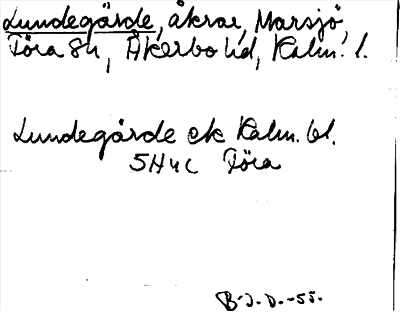 Lundegärde, åkrar, Marsjö,
Föra sn, Åkerbo hd, Kalm. l.
Lundegärde ek Kalm. bl.
5H4c Föra
B-J. D. -55.